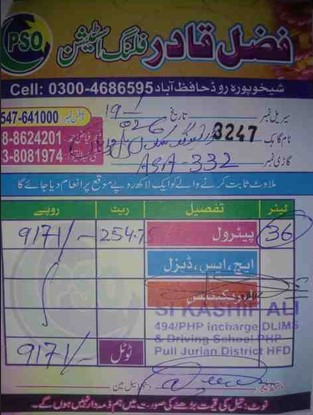 PSO
فضل قادر فلنگ اسٹیشن
شیخوپورہ روڈ حافظ آباد Cell: 0300-4686595
547-641000
8-8624201
3-8081974
سیریل نمبر 3247 تاریخ 19/
نام گاہک
گاڑی نمبر ASA-332
ملاوٹ ثابت کرنے والے کو ایک لاکھ روپے موقع پر انعام دیا جائے گا
لیٹر تفصیل ریٹ روپے
36 پیٹرول 254.75 9171/-
ایچ، ایس، ڈیزل
SI KASHIF ALI
494/PHP incharge DLIMS
& Driving School PHP
Pull Jurian District HFD
ٹوٹل 9171/-
نوٹ: تیل کی قیمت بڑھنے کی صورت میں ہم ذمہ دار نہیں ہوں گے۔